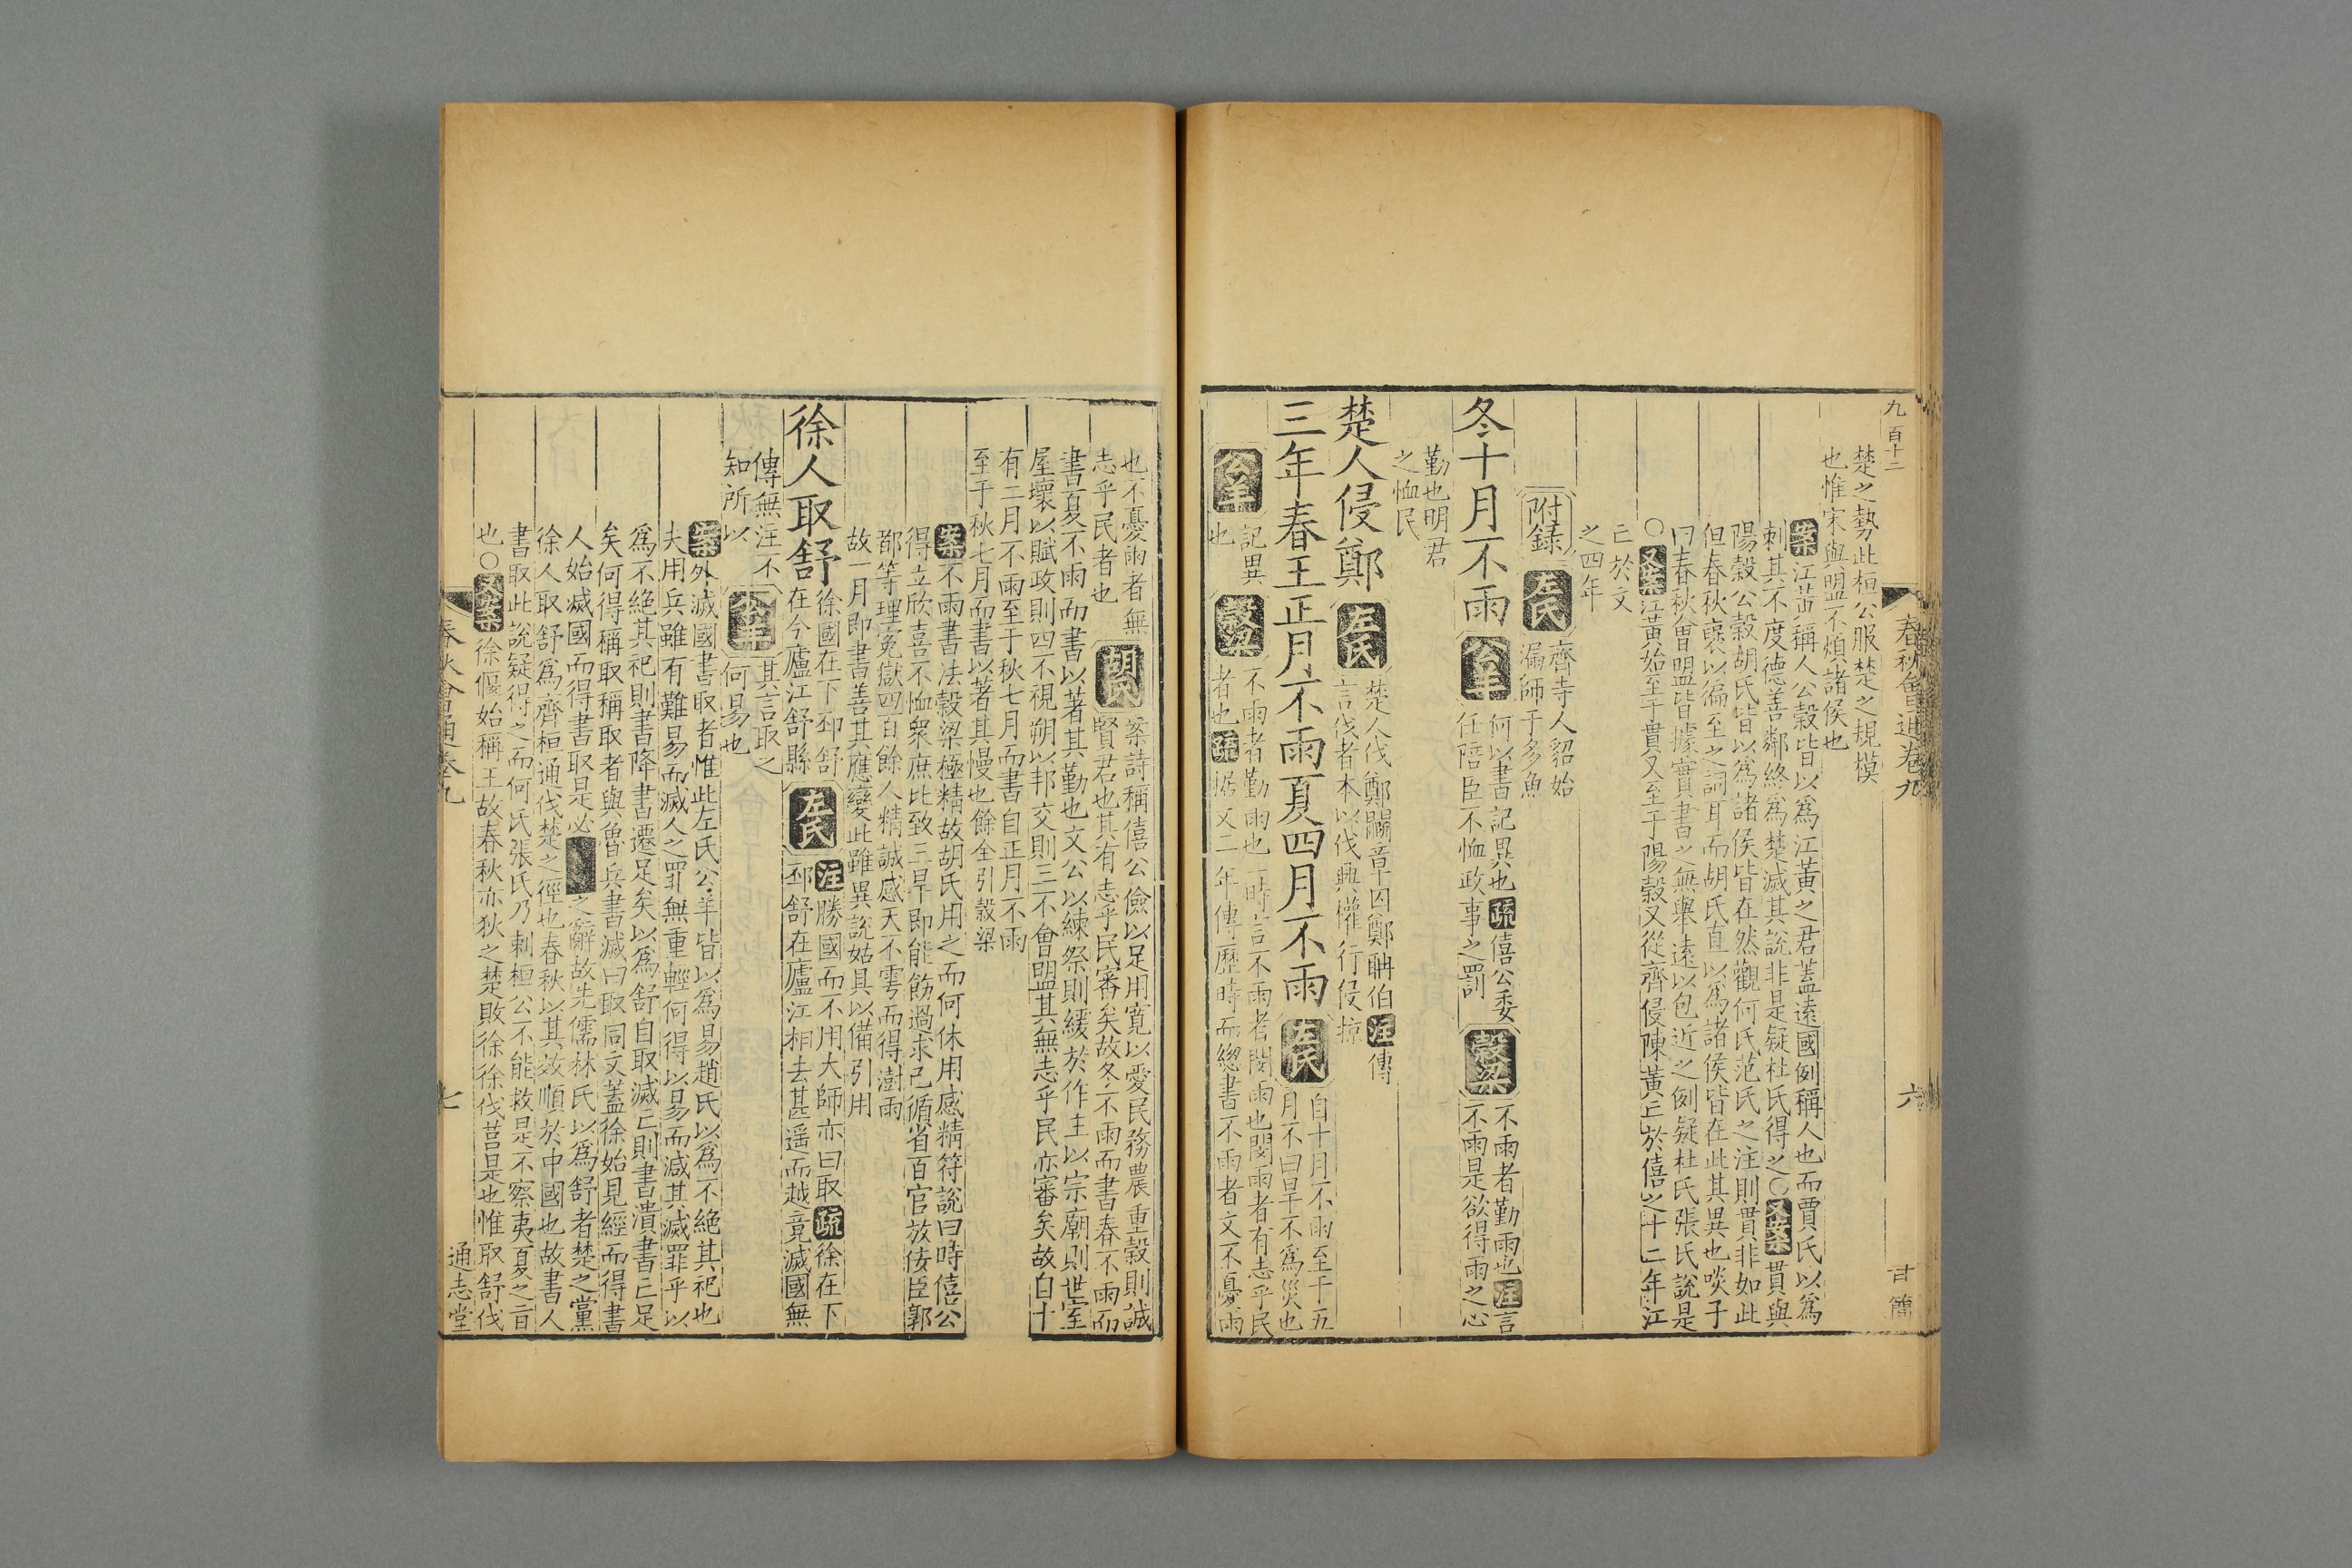 九百十二
春秋會通卷九
六
甘簡
楚之勢此桓公服楚之規模
也惟宋與盟不煩諸侯也
案江黃稱人公穀皆以為江黃之君蓋遠國例稱人也而賈氏以為
刺其不度德善鄰終為楚滅其說非是疑杜氏得之○又案貫與
陽穀公穀胡氏皆以為諸侯皆在然觀何氏范氏之注則貫非如此
但春秋褒以徧至之詞耳而胡氏直以為諸侯皆在此其異也啖子
曰春秋會盟皆據實書之無舉遠以包近之例疑杜氏張氏說是
○又案江黃始至于貫又至于陽穀又從齊侵陳黃亡於僖之十二年江
亡於文
之四年
附錄 左氏 齊寺人貂始
漏師于多魚
冬十月不雨 公羊 何以書記異也疏僖公委
任陪臣不恤政事之罰 穀梁 不雨者勤雨也注言
不雨是欲得雨之心
勤也明君
之恤民
楚人侵鄭 左氏 楚人伐鄭鬭章囚鄭聃伯注傳
言伐者本以伐興權行侵掠
三年春王正月不雨夏四月不雨 左氏 自十月不雨至于五
月不曰旱不為災也
公羊 記異
也 穀梁 不雨者勤雨也一時言不雨者閔雨也閔雨者有志乎民
者也疏據文二年傳歷時而緫書不雨者文不憂雨
也不憂雨者無
志乎民者也 胡氏 案詩稱僖公儉以足用寬以愛民務農重穀則誠
賢君也其有志乎民審矣故冬不雨而書春不雨而
書夏不雨而書以著其勤也文公以練祭則緩於作主以宗廟則世室
屋壞以賦政則四不視朔以邦交則三不會盟其無志乎民亦審矣故自十
有二月不雨至于秋七月而書自正月不雨
至于秋七月而書以著其慢也餘全引穀梁
案不雨書法穀梁極精故胡氏用之而何休用感精符說曰時僖公
得立欣喜不恤衆庶比致三旱即能飭過求己循省百官放佞臣郭
都等理寃獄四百餘人精誠感天不雩而得澍雨
故一月即書善其應變此雖異說姑具以備引用
徐人取舒 徐國在下邳舒
在今廬江舒縣 左氏 注勝國而不用大師亦曰取疏徐在下
邳舒在廬江相去甚遥而越竟滅國無
傳無注不
知所以 公羊 其言取之
何易也
案外滅國書取者惟此左氏公羊皆以為易趙氏以為不絶其祀也
夫用兵雖有難易而滅人之罪無重輕何得以易而減其滅罪乎以
為不絶其祀則書降書遷足矣以為舒自取滅亡則書潰書亡足
矣何得稱取稱取者與魯兵書滅曰取同文蓋徐始見經而得書
人始滅國而得書取是必 之辭故先儒林氏以為舒者楚之黨
徐人取舒為齊桓通伐楚之徑也春秋以其效順於中國也故書人
書取此說疑得之而何氏張氏乃刺桓公不能救是不察夷夏之言
也○又案徐偃始稱王故春秋亦狄之楚敗徐徐伐莒是也惟取舒伐
春秋會通卷九
七
通志堂